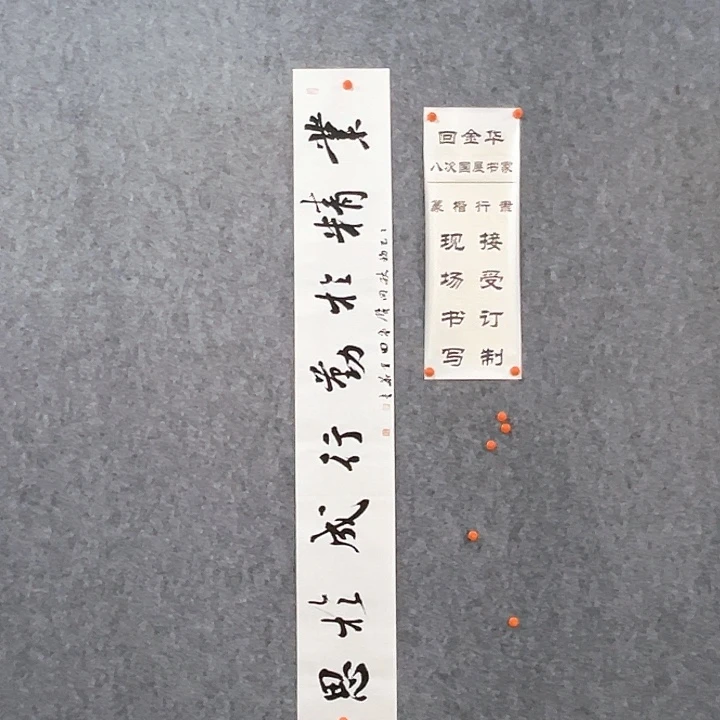 業精於勤行成於思
回金华
八次国展书家
篆楷行隶
接受订制
现场书写